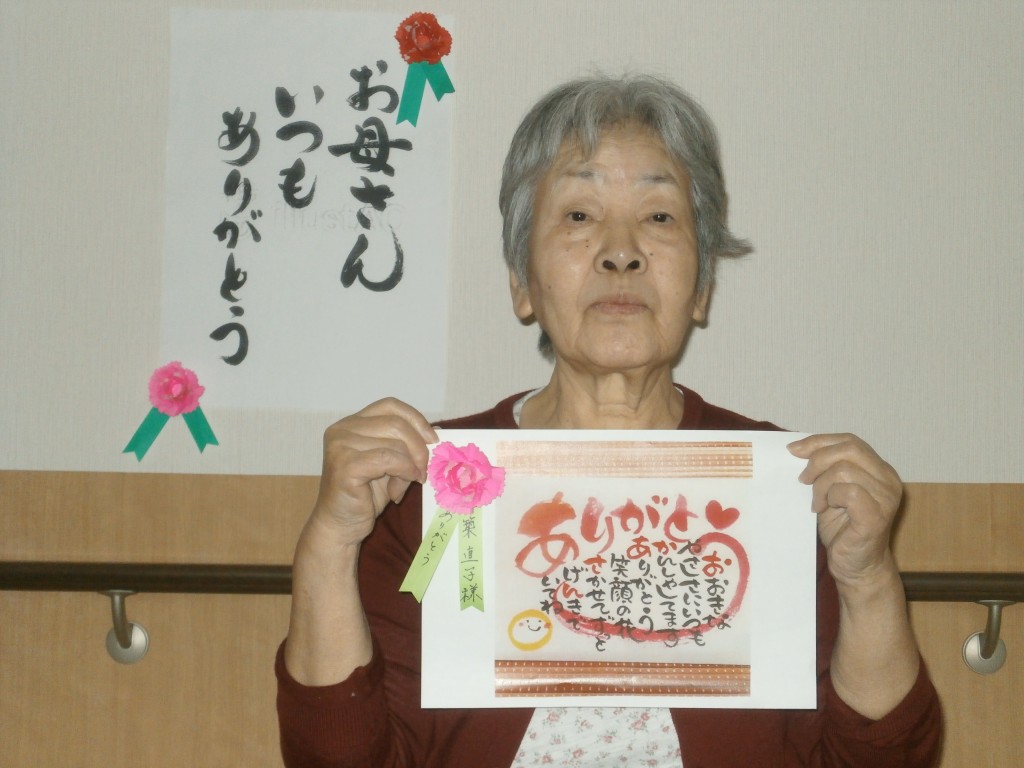 お母さん
いつも
ありがとう
ありがとう
直子様
ありがとう
おおきな
やさしさにいつも
かんしゃしてます
ありがとう
笑顔の花
さかせてずっと
げんきで
いてね